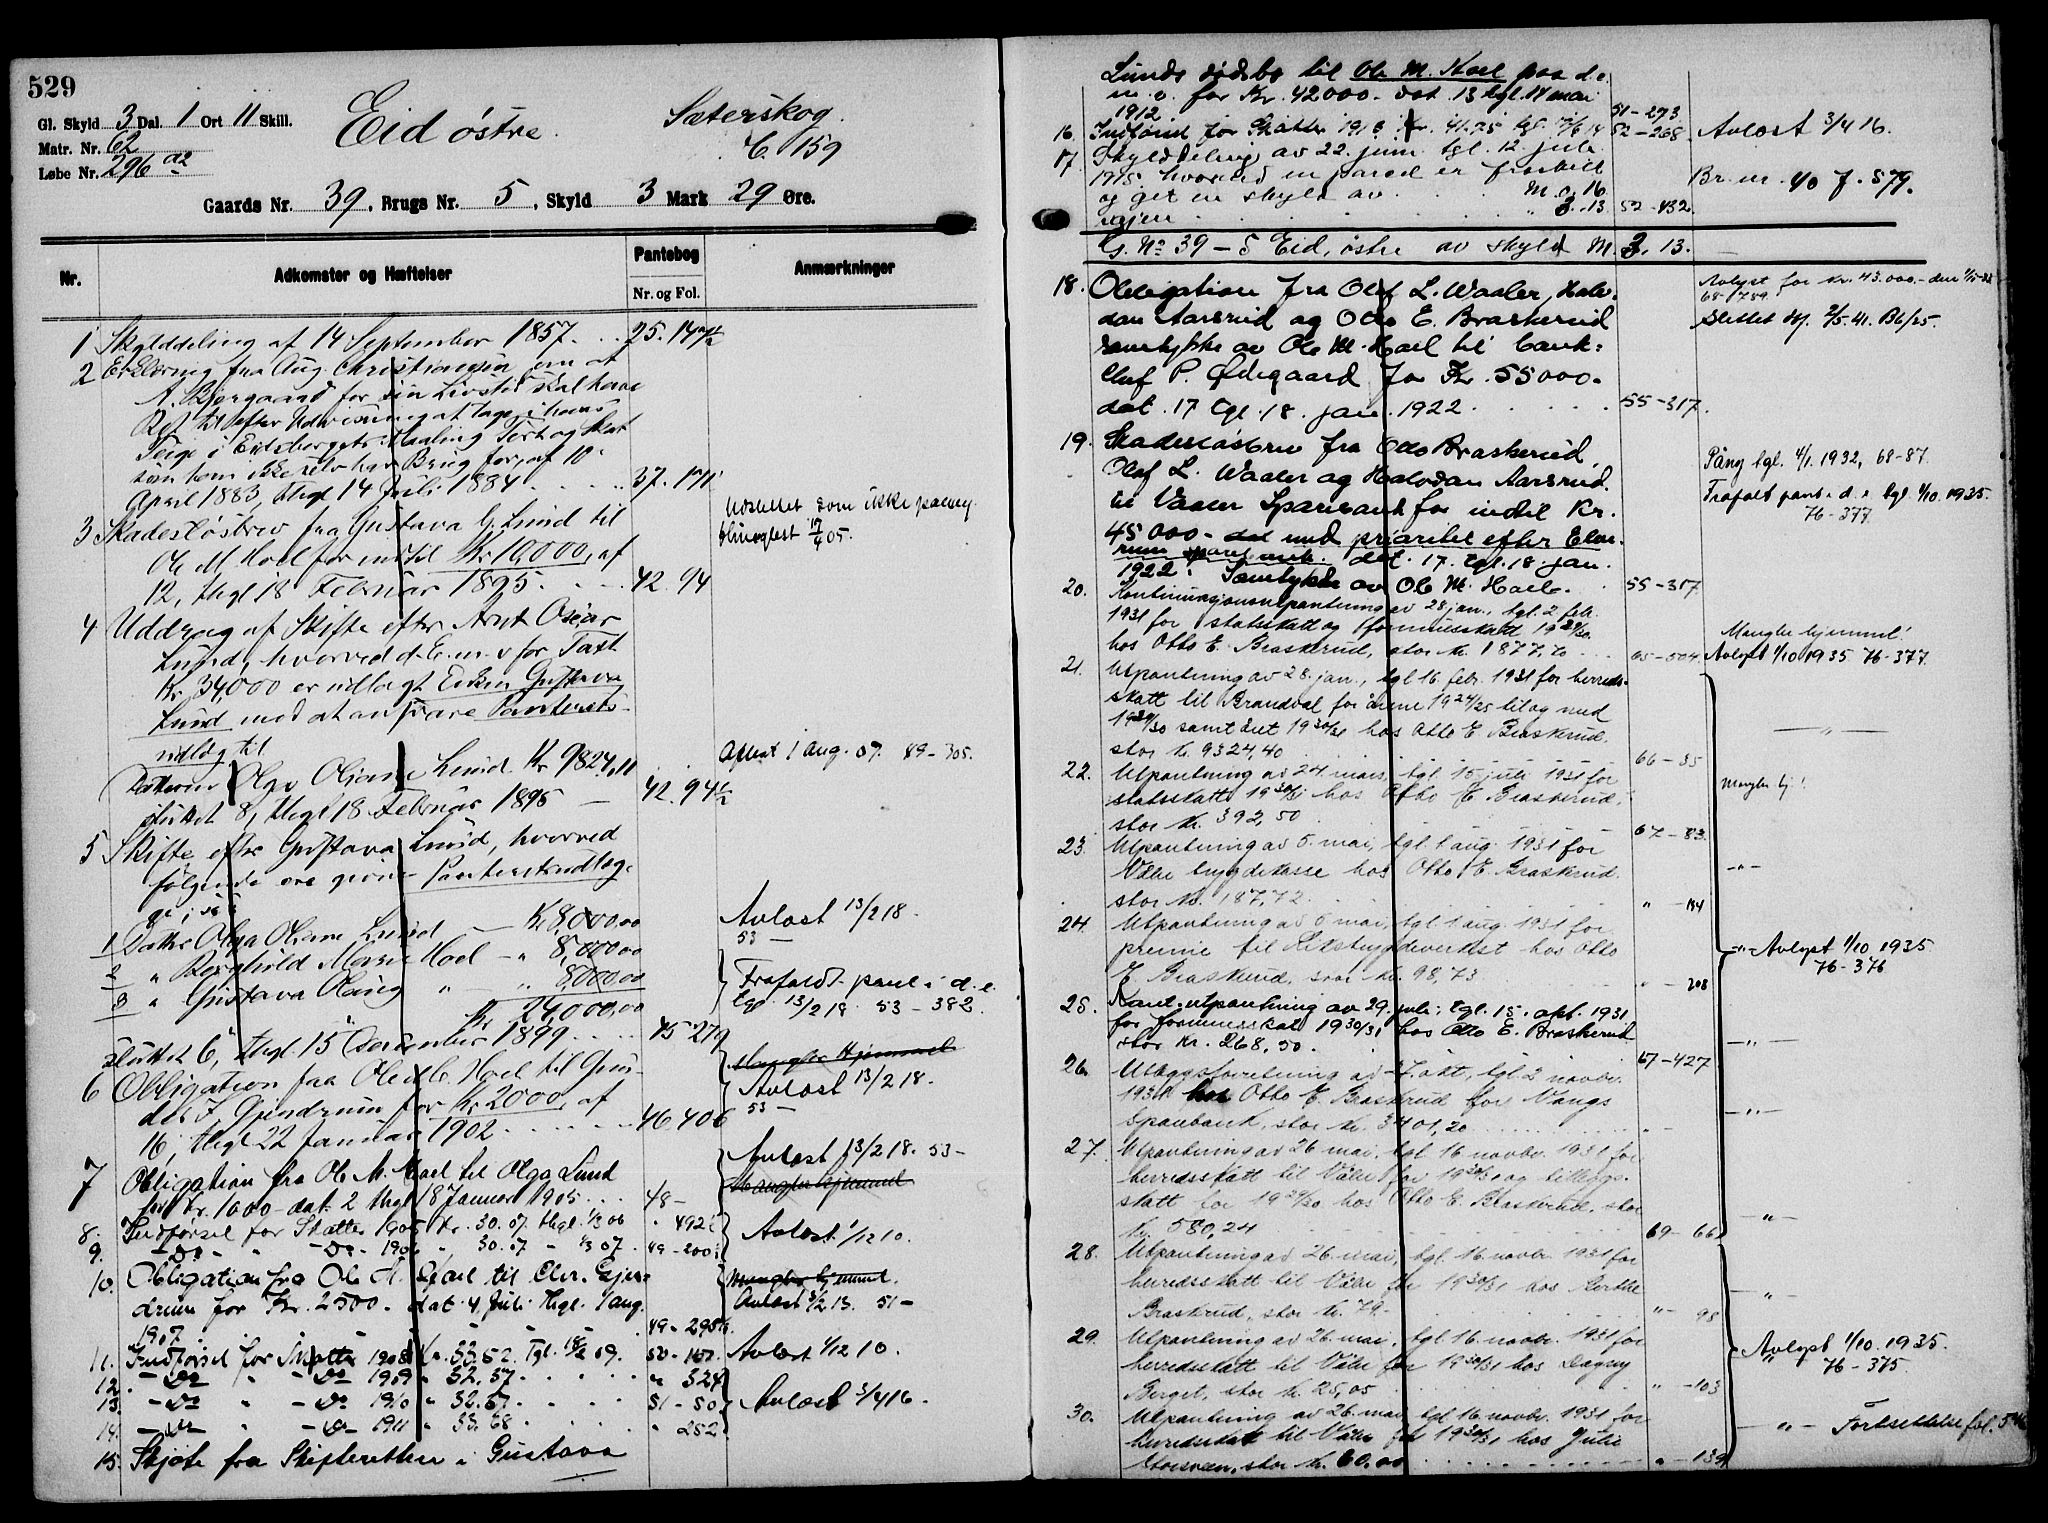 529
Gl. Skyld 3 Dal. 1 Ort 11 Skill.
Matr. Nr. 62
Løbe Nr. 296 a2
Eid østre.
Sæterskog
6. 159
Gaards Nr. 39, Brugs Nr. 5, Skyld 3 Mark 29 Øre.
Nr.
Adkomster og Hæftelser
Pantebog
Nr. og Fol.
Anmærkninger
1 Skylddeling af 14 September 1857. . . 25. 14
2 Erklæring fra Aug. Christiansen om at
A. Bergaard for sin Livstid skal have
Ret til efter Udvisning at tage i hans
Teige i Eidsberget
som han ikke selv har Brug for, af 10
April 1883, thgl 14 Juli 1884 . . . . 37. 171
3 Skadesløsbrev fra Gustava G. Lund til
Ole M Hoel for indtil Kr 10,000, af
12, thgl 18 Februar 1895 . . . 42. 94
Udslettet som ikke paany
thinglest 17/4 05.
4 Uddrag af Skifte efter Arnt Oscar
Lund, hvorved d. E. m. v for Taxt
Kr. 34,000 er udlagt Enken Gustava
Lund mod at ansvare Panterets-
udlæg til
Datteren Olga Oliane Lund. Kr 9824,11
sluttet 8, thgl 18 Februar 1895 — 42. 94
Aflæst 1 aug. 07. 49-305.
5 Skifte efter Gustava Lund, hvorved
følgende ere givne Panteretsudlæg-
ge;
1 Datter Olga Oliane Lund — Kr 8,000,00
2 " Borghild Marie Hoel — " 8,000,00
3 " Gustava Olving " — " 8000,00
Kr 24,000,00
sluttet 6, thgl. 15 December 1899 . . . . 45 279
Avlæst 13/2 18.
53 —
Frafaldt pant i d. e.
tgl. 13/2 18. 53 - 382.
6 Obligation fra Ole M. Hoel til Gun-
der F. Gjendrum for Kr 2000, af
16, thgl 22 Januar 1902 . . . . . 46 406
Mangler Hjemmel
Avlæst 13/2 18.
53 —
7 Obligation fra Ole M. Hoel til Olga Lund
for Kr. 1000 - dat. 2 thgl 18 Januar 1905 . . . 48 -
Avlæst 13/2 18. 53 —
Mangler hjemmel
8. Indførsel for Skatter 1905 Kr. 30.07. thgl. 1/3 06 " 492
9. — Do — " — Do — 1906 " 30.07 " 1/3 07. 49 - 200
Avlæst 1/12 10.
10. Obligation fra Ole M. Hoel til Chr. Gjen-
drum for Kr. 2500. - dat. 4. Juli thgl. 1 aug.
1907. 49 - 295
Mangler hjemmel.
Avlæst 3/2 13. 51 —
11. Indførsel for Skatter 1908 Kr. 33.52. Tgl. 18/2 09. 50 - 107.
12. — Do " — Do 1909 " 32.37 . . . . " 324
13. — Do " — Do 1910 " 32.67 . . . . 51 - 50
14. — Do — " — Do — 1911 " 33.68 . . . . " 252
Avlæst 1/12 10.
Avlæst 3/4 16.
15. Skjøte fra Skifteretten i Gustava
Lunds dødsbo til Ole M. Hoel paa d. e.
m. v. for Kr. 42000. - dat. 13 tgl. 14 mai
1912 51 - 273
16. Indførsel for Skatter 1913 Kr. 41.75 tgl. 17/6 14 52 - 268 Avlæst 3/4 16.
17. Skylddeling av 22. juni tgl. 12. juli
1915 hvorved en parcel er fraskilt
og git en skyld av . . . M. 0.16 Br. nr. 40 f. 579.
igjen . . . . . . . " 3.13 52 - 432
G. No 39 - 5 Eid, østre av skyld M. 3.13.
18. Obligation fra Olof L. Waaler, Halv-
dan Aarsrud og Otto E. Braskerud
samtykke av Ole M. Hoel til bank-
chef P. Ødegaard for Kr. 55000.-
dat. 17 tgl. 18. jan. 1922 . . . . . 55 - 317.
Avlyst for Kr. 43.000.- den
68 - 789.
Slettet
19. Skadesløsbrev fra Otto Braskerud,
Olof L. Waaler og Halvdan Aarsrud
til Vaaler Sparebank for indtil Kr.
45000.- dat med prioritet efter Elve-
rum sparebank. dat. 17. tgl. 18. jan.
1922. Samtykke av Ole M. Hoel. 55 - 317
Påny tgl. 4/1. 1932, 68-87.
Frafalt pant i d. e. tgl. 1/10. 1935.
76 - 377
20. Kontinuasjonsutpantning av 28 jan., tgl. 2 febr.
1931 for statsskatt og formuesskatt 1929/30
hos Otto E. Braskerud, stor kr. 1877,70 . . . 65 - 504
Mangler hjemmel!
Avlyst 1/10 1935 76 - 377
21. Utpantning av 28. jan., tgl 16 febr. 1931 for herreds-
skatt til Brandval for årene 1924/25 til og med
1929/30 samt året 1930/31 hos Otto E. Braskerud.
stor kr. 9324,40 . . . . . . 66 - 35
— " —
22. Utpantning av 24. mars, tgl 15 juli 1931 for
statsskatt 1930/31 hos Otto E. Braskerud,
stor kr. 392,50 . . . . . 67 - 83
Mangler hj.!
23. Utpantning av 5. mai, tgl 1 aug. 1931 for
Våler trygdekasse hos Otto E. Braskerud.
stor kr. 187,72 . . . . . " - 184
— " —
24. Utpantning av 5 mai, tgl 1 aug. 1931 for
premie til Rikstrygdeverket hos Otto
E. Braskerud, stor kr. 98,73 . . . " - 208
— " — Avlyst 1/10 1935
76 - 376
25. Kont. utpantning av 29. juli, tgl. 15. okt. 1931
for formuesskat 1930/31 hos Otto E. Braskerud
stor kr. 268,50 . . . . . 67 - 427
— " —
26. Utleggsforretning av 7. okt, tgl. 2 novbr.
1931 hos Otto E. Braskerud for Vangs
Sparebank, stor kr. 3401,20 . . . . " -
— " —
27. Utpantning av 26 mai, tgl 16 novbr. 1931 for
herredsskatt til Våler for 1930/31 og tilleggs-
skatt for 1929/30 hos Otto E. Braskerud, stor
kr. 580,24 . . . . . 69 - 66
— " —
28. Utpantning av 26. mai, tgl. 16. novbr. 1931 for
herredsskatt til Våler for 1930/31 hos Berthe
Braskrud, stor kr. 79.- . . . . " - 98
— " —
29. Utpantning av 26. mai, tgl 16. novbr. 1931 for
herredsskatt til Våler for 1930/31 hos Dagny
Berget, stor kr. 25,05 . . . . " - 103
Avlyst 1/10. 1935.
76 - 375.
30. Utpantning av 26. mai, tgl 16. novbr. 1931 for
herredsskatt til Våler for 1930/31 hos Julie
Storsveen, stor kr. 60,00 . . . . " - 139
— " — Fortsettelse fol.